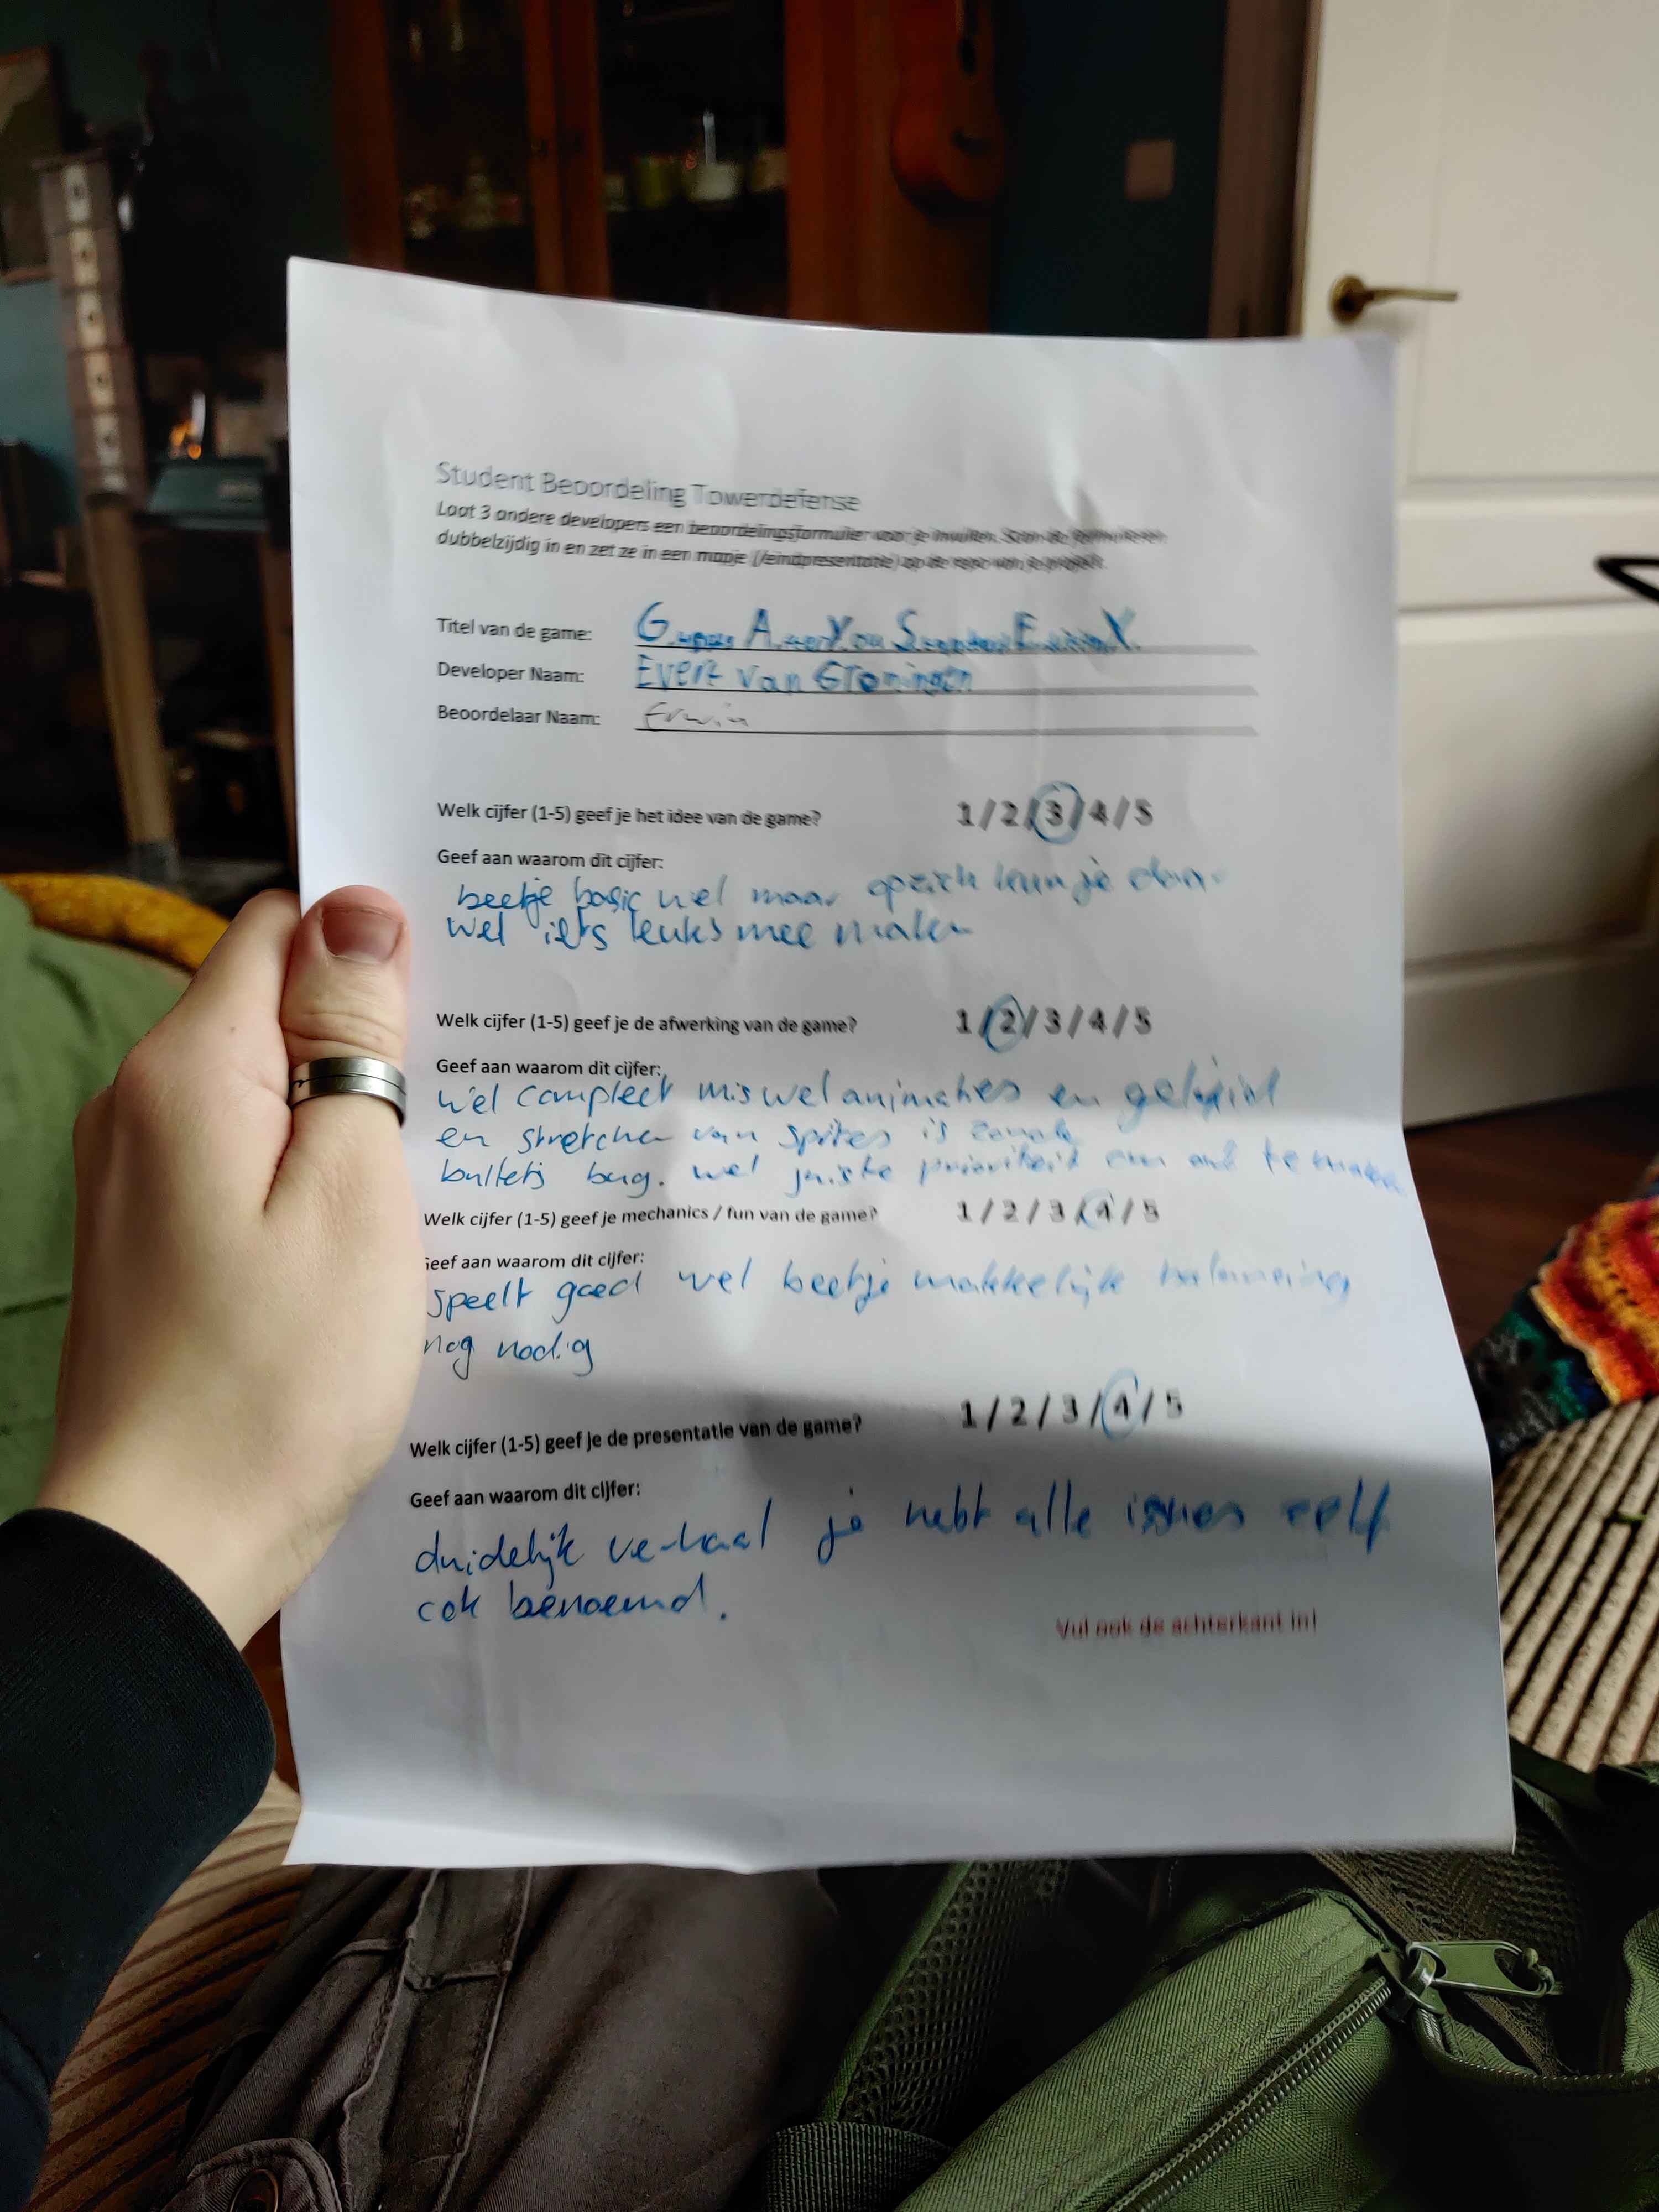 Student Beoordeling Towerdefense
Laat 3 andere developers een beoordelingsformulier voor je invullen. Scan de formulieren
dubbelzijdig in en zet ze in een mapje (/eindpresentatie) op de repo van je project.
Titel van de game: G A You S E X
Developer Naam: Evert van Groningen
Beoordelaar Naam: Erwin
Welk cijfer (1-5) geef je het idee van de game? 1 / 2 / 3 / 4 / 5
Geef aan waarom dit cijfer:
beetje basic wel maar opzich kun je daar
wel iets leuks mee maken
Welk cijfer (1-5) geef je de afwerking van de game? 1 / 2 / 3 / 4 / 5
Geef aan waarom dit cijfer:
Wel compleet mis wel animaties en geluid
en stretchen van sprites is zonde
bullets bug. wel juiste prioriteit om af te maken
Welk cijfer (1-5) geef je mechanics / fun van de game? 1 / 2 / 3 / 4 / 5
Geef aan waarom dit cijfer:
speelt goed wel beetje makkelijk balancering
nog nodig
Welk cijfer (1-5) geef je de presentatie van de game? 1 / 2 / 3 / 4 / 5
Geef aan waarom dit cijfer:
duidelijk verhaal je hebt alle issues zelf
ook benoemd.
Vul ook de achterkant in!